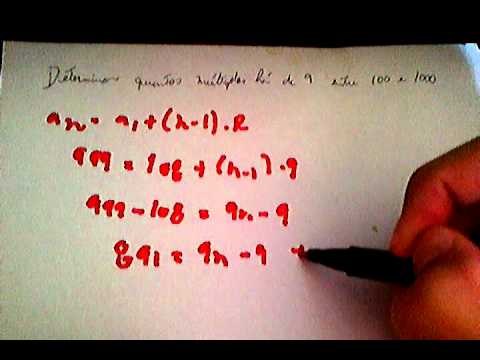 Determinar quantos múltiplos há de 9 entre 100 e 1000
an = a1 + (n-1).R
999 = 108 + (n-1).9
999-108 = 9n-9
891 = 9n-9